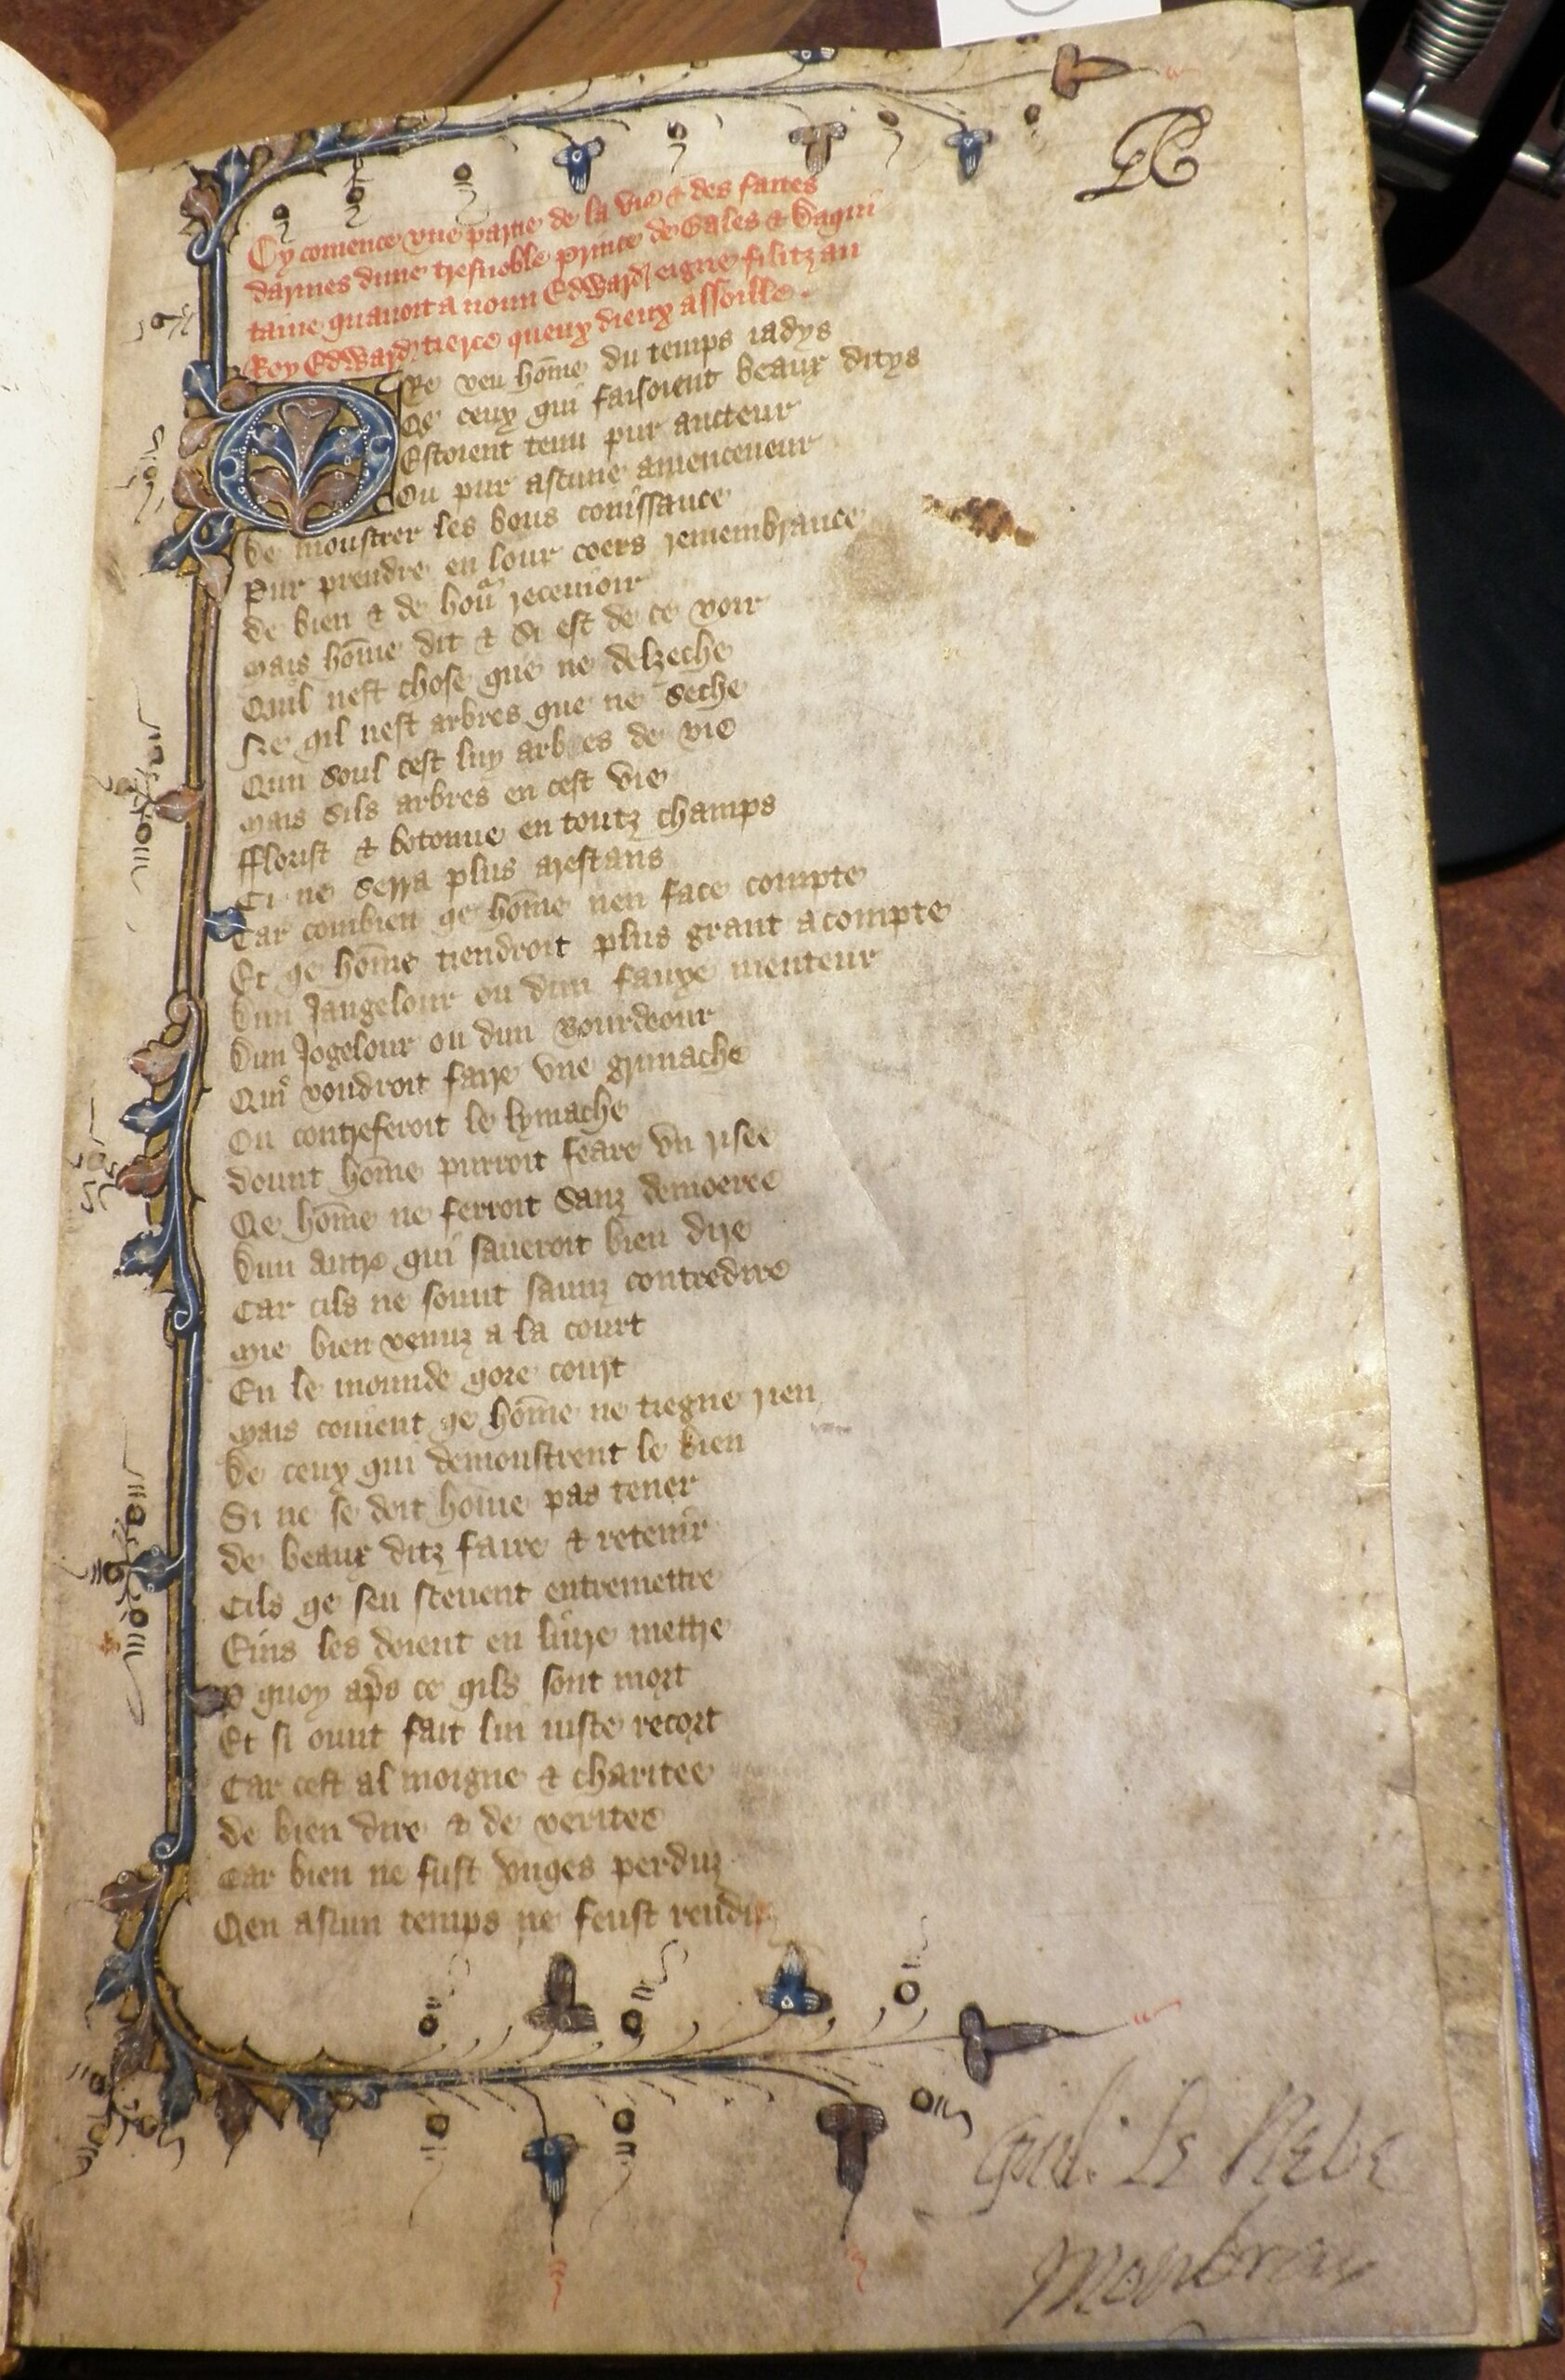 Cy comence vne partie de la vie & des faites
darmes dune tresnoble prince de Gales & daqui
taine quauoit a noun Edward eigne filitz au
Roy Edward tierce queux dieux assoille.
Ore veu hōme du temps iadys
Qe ceux qui faisoient beaux ditys
Estoient tenu pur aucteur
Ou pur ascune amenceneur
De moustrer les bons conissance
Pur prendre en lour coers remembrance
De bien & de honur receuioir
Mais hōme dit & si est de ce voir
Quil nest chose que ne delzeche
Ne qil nest arbres que ne seche
Qun soul cest luy arbres de vie
Mais sils arbres en cest vie
fflorist & botonne en toutz champs
Ci ne serra plus arestans
Car combien qe hōme nen face compte
Et qe hōme tiendroit plus grant acompte
Dun Jangelour ou dun fauxe menteur
Dun Jogelour ou dun Bourdeour
Qui voudroit faire vne grimache
Ou contreferoit le lymache
Dount hōme purroit feare vn risee
Qe hōme ne ferroit sanz demoeree
Dun autre qui saueroit bien dire
Car cils ne sount saunz contredire
Mie bien venuz a la court
En le mounde qore court
Mais coment qe hōme ne tiegne rien
De ceux qui demoustrent le bien
Si ne se doit home pas tener
De beaux ditz faire & retenir
Cils qe sen sceuent entremettre
Eins les doient en liure mettre
P quoy aps ce qils sont mort
Et si ount fait lui iuste recort
Car cest almoigne & charitee
De bien dire & de veritee
Car bien ne fust vnges perduz
Qen ascun temps ne feust renduz
Gul: Le Nebe